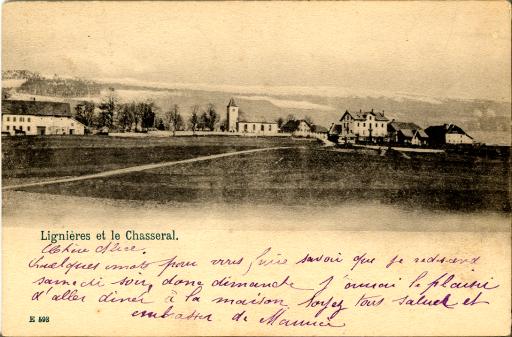 Lignières et le Chasseral.
Chère Alice.
Quelques mots pour vous faire savoir que je redescend
samedi soir, donc dimanche j'aurai le plaisir
d'aller diner à la maison soyez tous salués et
embrassés de Maurice
E 593